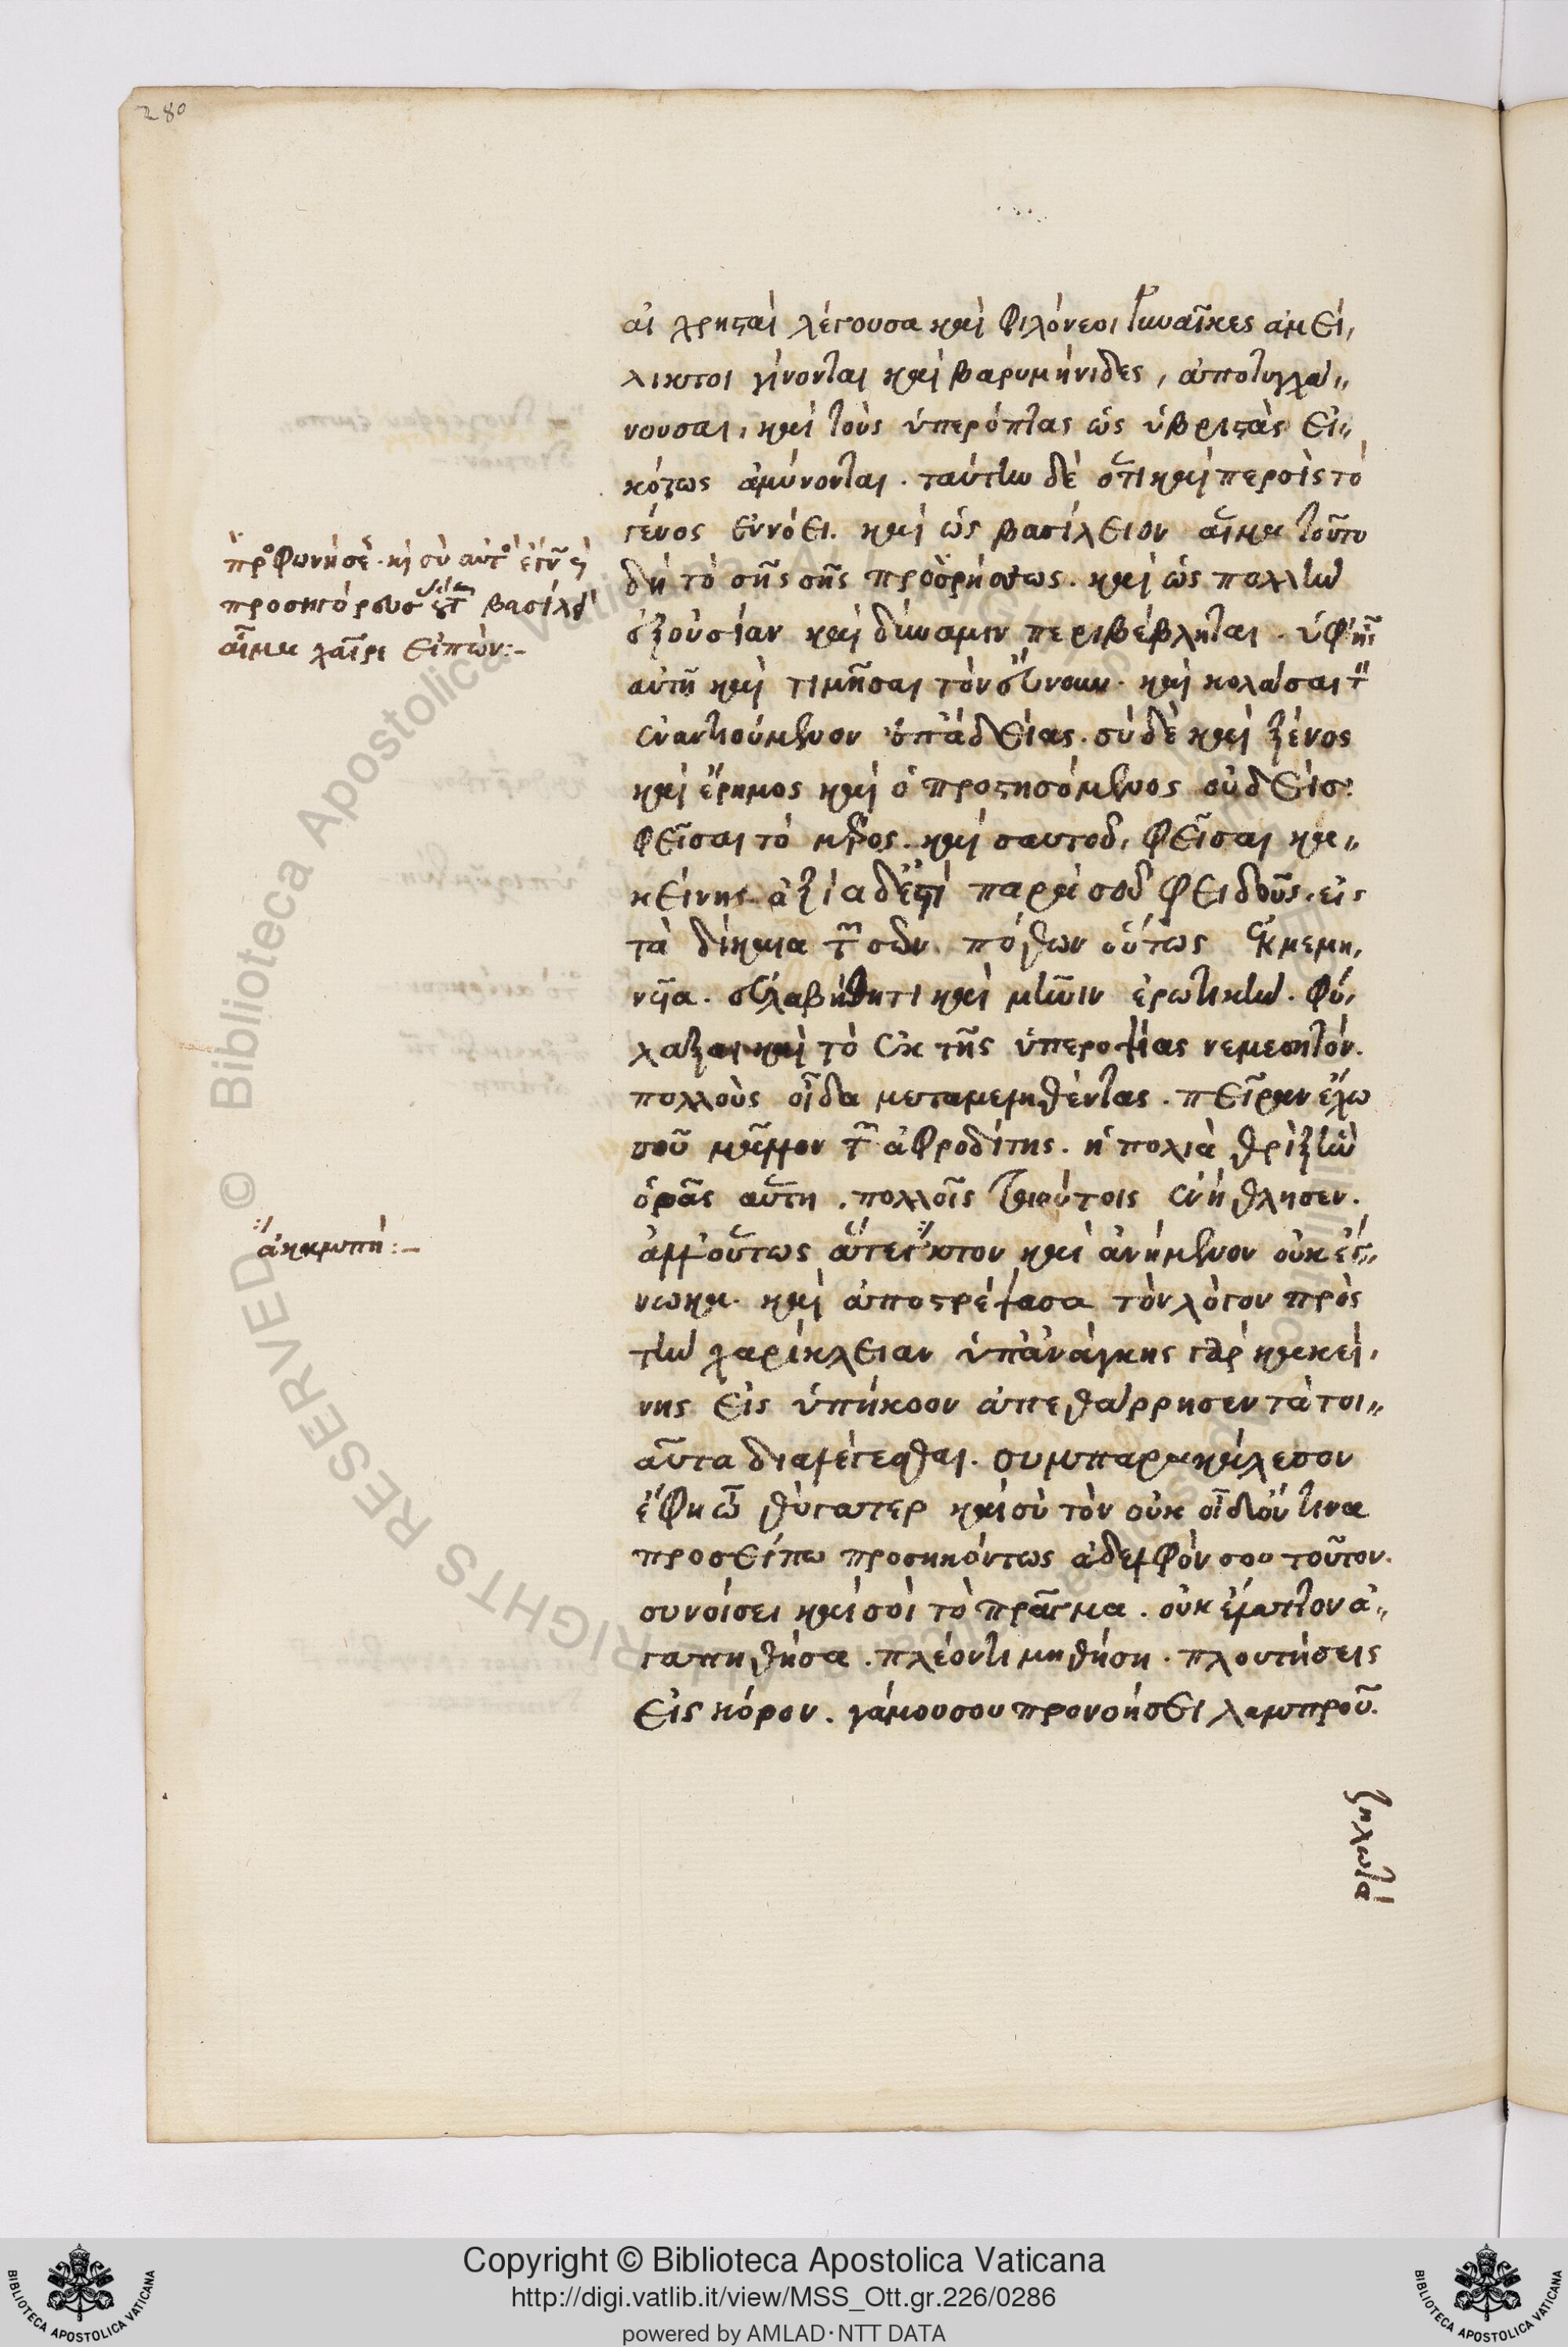 280
αἱ χρησταὶ λέγουσα καὶ φιλόνεοι γυναῖκες ἀμεί,
λικτοι γίνονται καὶ βαρυμήνιδες, ἀποτυγχά,,
νουσαι, καὶ τοὺς ὑπερόπτας ὡς ὑβριστὰς εἰ,,
κότως ἀμύνονται. ταύτην δὲ ὅτι καὶ περσὶς τὸ
γένος ἐννόει. καὶ ὡς βασίλειον αἷμα τοῦτο
δὴ τὸ σῆς σῆς προσρήσεως. καὶ ὡς πολλὴν
ἐξουσίαν καὶ δύναμιν περιβέβληται. ὑφ' ἧς
αὐτῇ καὶ τιμῆσαι τὸν εὔνουν. καὶ κολάσαι τ
ἐναντιούμενον ἐπ' ἀδείας. σὺ δὲ καὶ ξένος
καὶ ἔρημος καὶ ὁ προστησόμενος οὐδείς:
φεῖσαι τὸ μέρος. καὶ σαυτοῦ, φεῖσαι κα,,
κείνης. ἀξία δέ ἐστι παρὰ σοῦ φειδοῦς. εἰς
τὰ δίκαια τ σῶν πόθων οὕτως ἐκμεμη,
νυῖα. εὐλαβήθητι καὶ μῆνιν ἐρωτικήν. φύ,
λαξαι καὶ τὸ ἐκ τῆς ὑπεροψίας νεμεσητόν.
πολλοὺς οἶδα μεταμεληθέντας. πεῖραν ἔχω
σοῦ μᾶλλον τ ἀφροδίτης. ἡ πολιὰ θρὶξ ἣν
ὁρᾷς αὕτη. πολλοῖς τοιούτοις ἐνήθλησεν.
ἀλλ' οὕτως ἄτεγκτον καὶ ἀνήμενον οὐκ ἔγ,,
νωκα. καὶ ἀποστρέψασα τὸν λόγον πρὸς
τὴν χαρίκλειαν ὑπ' ἀνάγκης γὰρ κἀκεί,
νης εἰς ὑπήκοον ἀπεθάρρησεν τὰ τοι,,
αῦτα διαλέγεσθαι. συμπαρακάλεσον
ἔφη ὦ θύγατερ καὶ σὺ τὸν οὐκ οἶδ' ὅν τινα
προσείπω προσηκόντως ἀδελφόν σου τοῦτον.
συνοίσει καὶ σοὶ τὸ πρᾶγμα. οὐκ ἔλαττον ἀ,,
γαπηθήσα. πλέον τιμηθήσῃ. πλουτήσεις
εἰς κόρον. γάμου σου προνοήσει λαμπροῦ.
ζηλωτὰ
βασίλει
αἷμα χαῖρε εἰπών:-
Copyright © Biblioteca Apostolica Vaticana
http://digi.vatlib.it/view/MSS_Ott.gr.226/0286
powered by AMLAD·NTT DATA